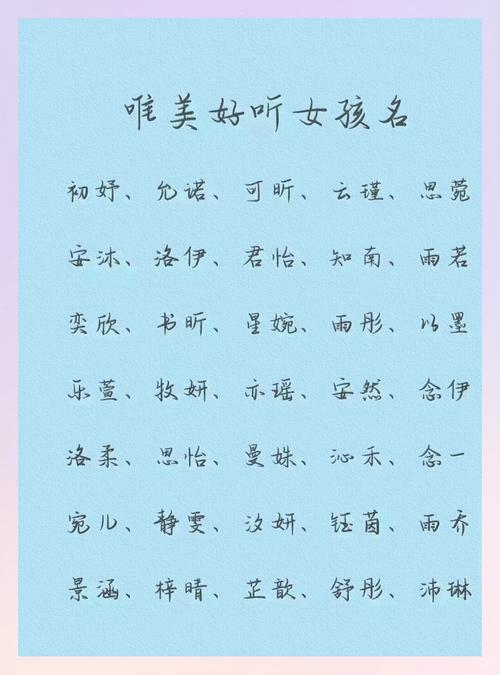 唯美好听女孩名
初妤、允诺、可昕、云瑾、思菀
安沐、洛伊、君怡、知南、雨若
奕欣、书昕、星婉、雨彤、以墨
乐萱、牧妍、亦瑶、安然、念伊
洛柔、思怡、曼姝、沁禾、念一
宛儿、静雯、汐妍、钰茵、雨乔
景涵、梓晴、芷歆、舒彤、沛琳